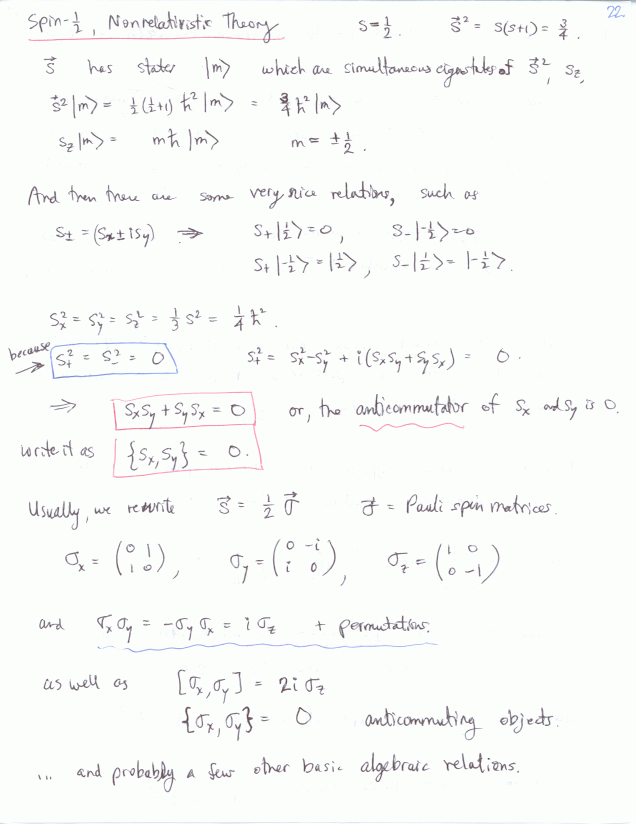 22.
Spin-½, Nonrelativistic Theory    S=½.    S⃗² = S(S+1) = ¾.
S⃗ has states |m⟩ which are simultaneous eigenstates of S⃗², Sz,
S⃗²|m⟩ = ½(½+1) ħ²|m⟩ = ¾ ħ²|m⟩
Sz|m⟩ = mħ|m⟩    m = ±½.
And then there are some very nice relations, such as
S± = (Sx±iSy) ⇒ S+|½⟩=0, S-|-½⟩=0
S+|-½⟩ = |½⟩, S-|½⟩ = |-½⟩.
Sx² = Sy² = Sz² = ⅓ S² = ¼ ħ².
because → S+² = S-² = 0    S+² = Sx²-Sy² + i(SxSy+SySx) = 0.
⇒ SxSy + SySx = 0 or, the anticommutator of Sx and Sy is 0.
write it as {Sx, Sy} = 0.
Usually, we rewrite S⃗ = ½ σ⃗    σ⃗ = Pauli spin matrices.
σx = (0 1; 1 0), σy = (0 -i; i 0), σz = (1 0; 0 -1)
and σxσy = -σyσx = iσz + permutations.
as well as [σx, σy] = 2iσz
{σx, σy} = 0 anticommuting objects.
... and probably a few other basic algebraic relations.